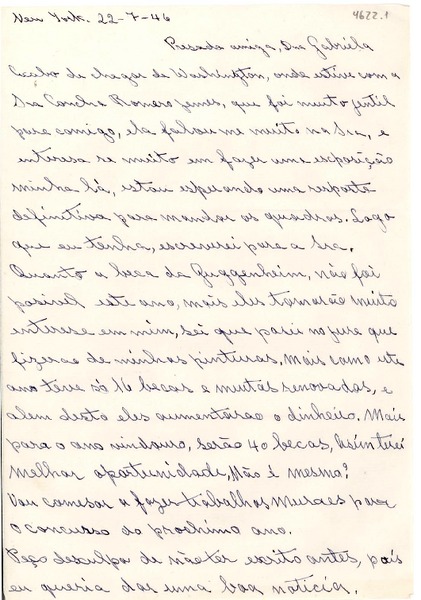 New York. 22-7-46
4622.1
Presada amiga, Dna Gabriéla
Acabo de chegar de Washington, onde estive com a
Sra Concha Romero James, que foi muito gentil
para comigo, ela falou me muito na Sra, e
interesa se muito em fazer uma exposição
minha lá, estou esperando uma resposta
definitiva para mandar os quadros. Logo
que eu tenha, escreverei para a Sra.
Quanto a beca da Guggenheim, não foi
posivel este ano, mais eles tomarão muito
interese em mim, sei que pasei no jure que
fizerão de minhas pinturas, mais como este
ano teve só 16 becas e muitas renovadas, e
alem disto eles aumentarão o dinheiro. Mais
para o ano vindouro, serão 40 becas, terei
melhor oportunidade, Não é mesmo?
Vou comesar a fazer trabalhos Muraes para
o concurso do prochimo ano.
Peço desculpa de não ter escrito antes, pois
eu queria dar uma boa noticia.